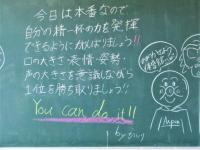 今日は本番なので
自分の精一杯の力を発揮
できるようにがんばりましょう!!
口の大きさ・表情・姿勢・
声の大きさを意識しながら
1位を勝ち取りましょう!!
You can do it!!
by